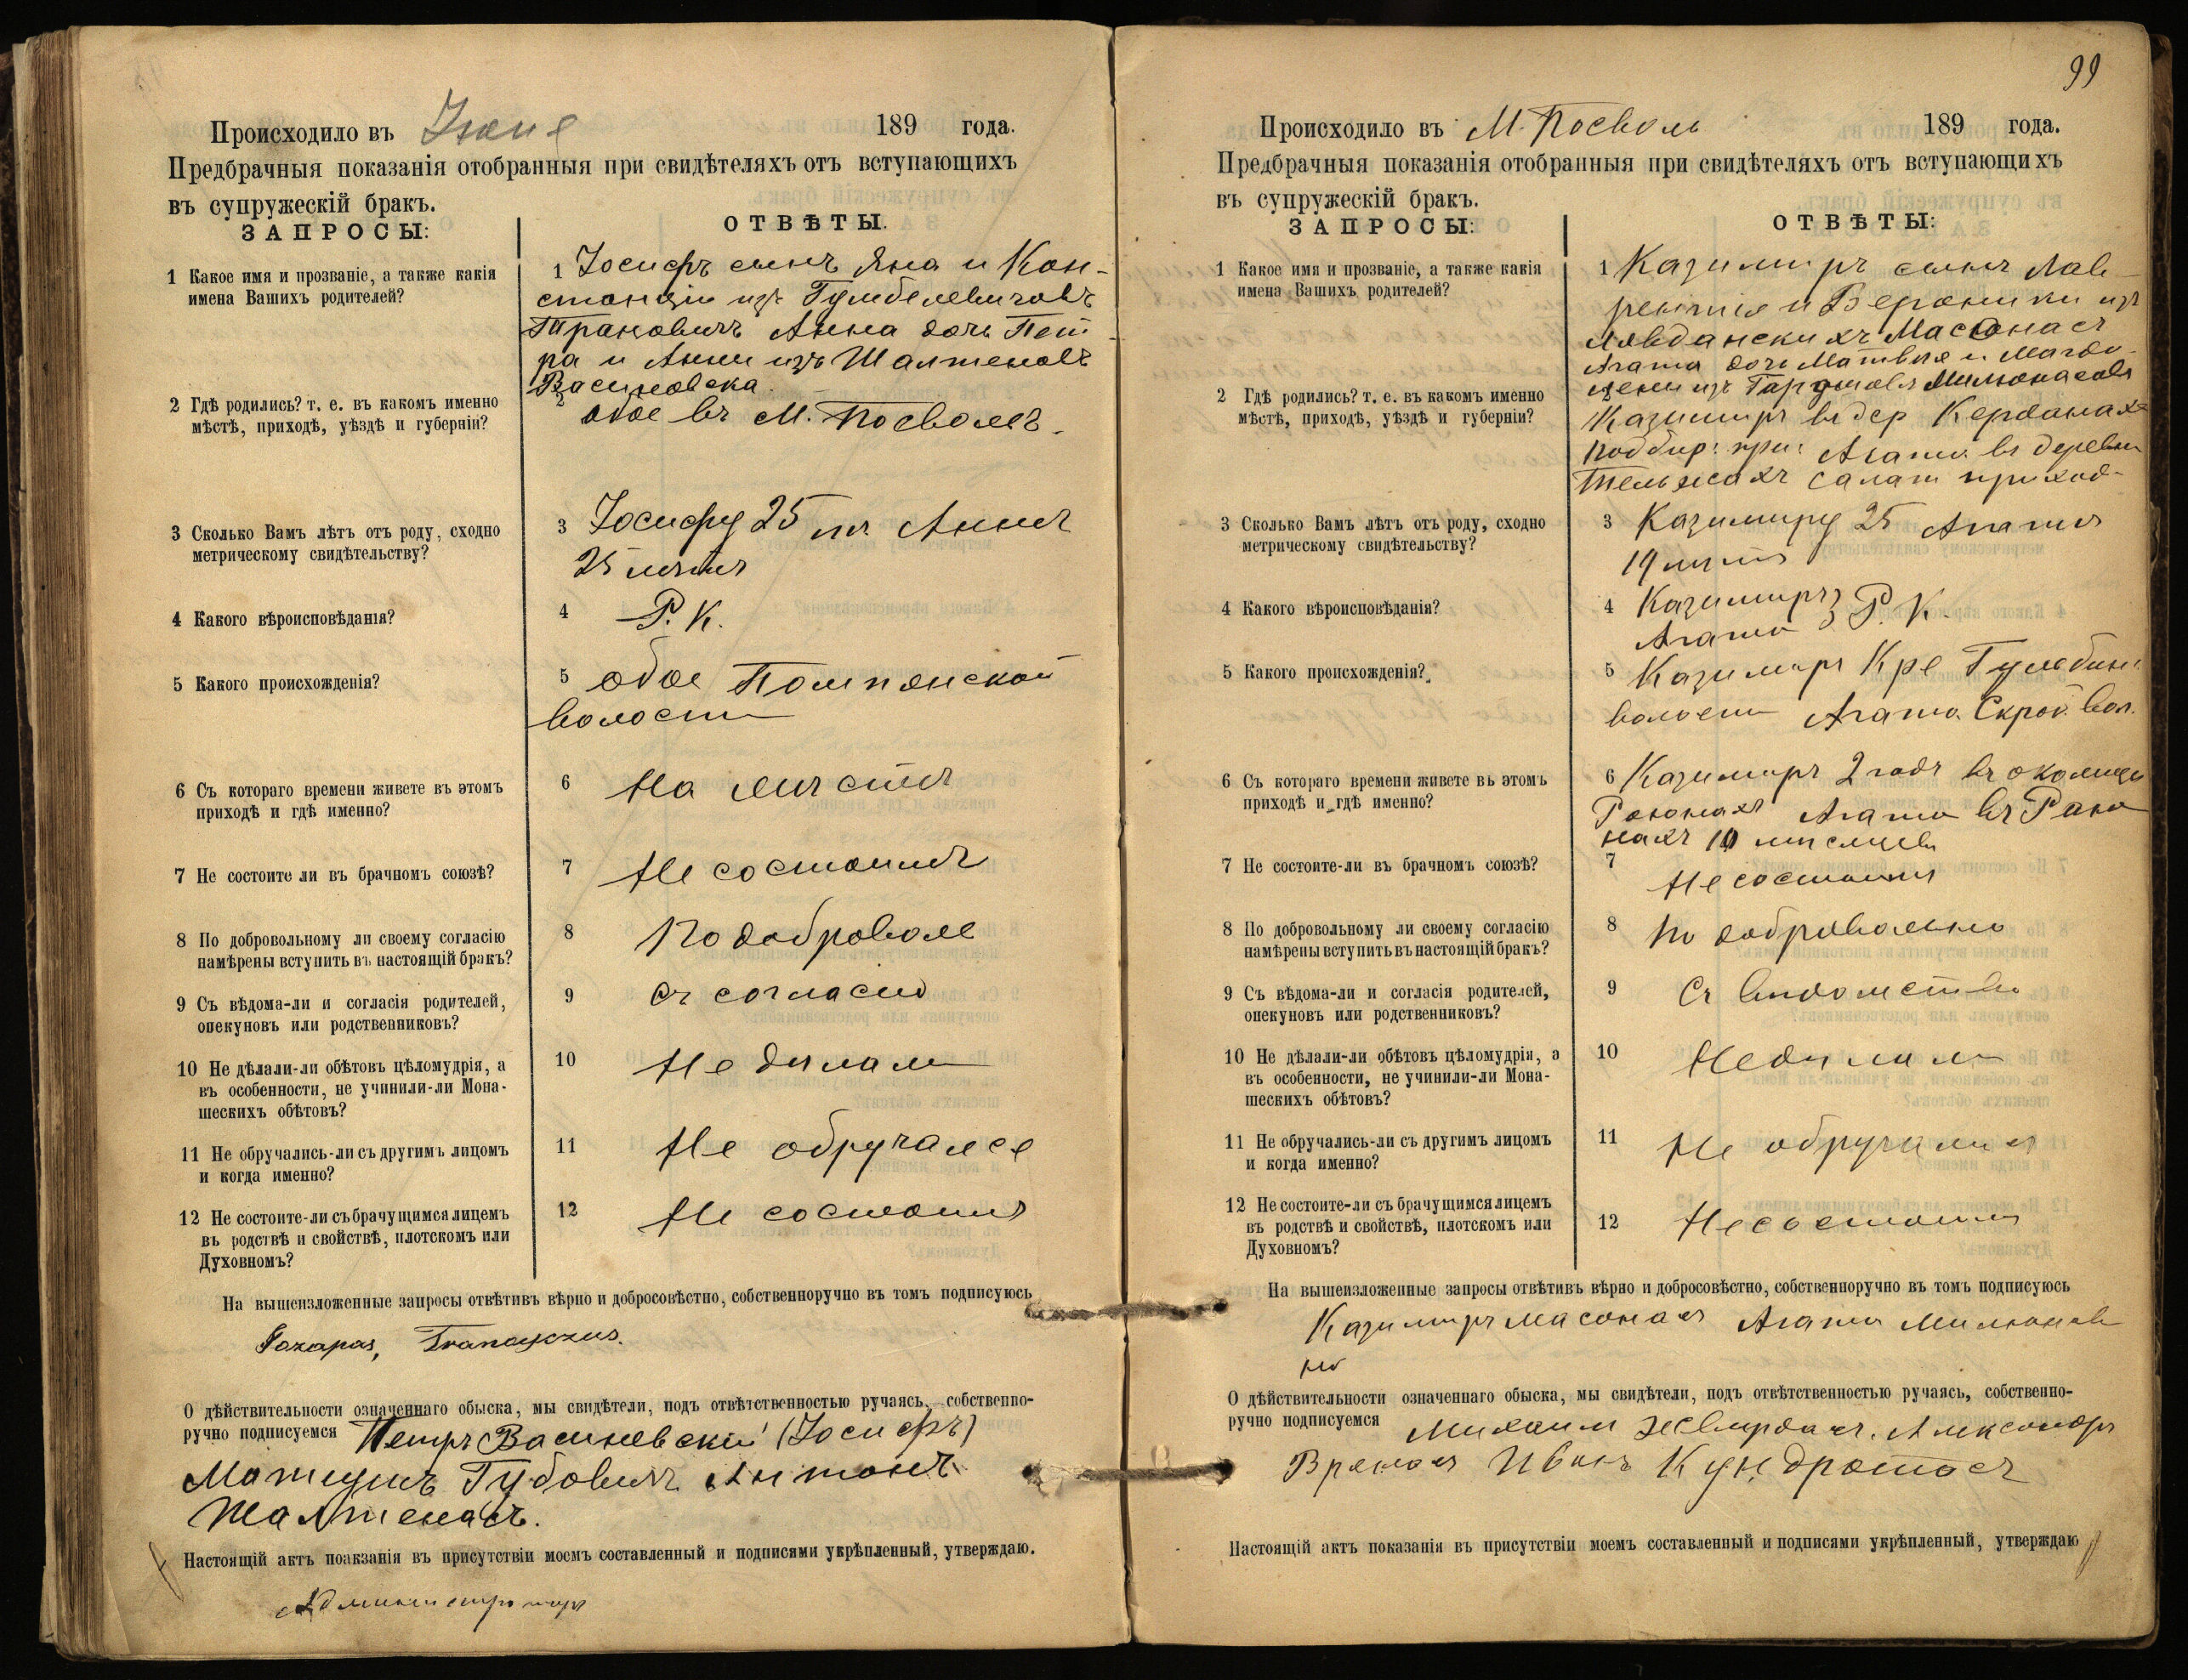 Происходило въ Іюнѣ 189 года.
Предбрачныя показанія отобранныя при свидѣтеляхъ отъ вступающихъ
въ супружескій бракъ.
ЗАПРОСЫ:
ОТВѢТЫ.
1 Какое имя и прозваніе, а также какія
имена Вашихъ родителей?
1 Іосифъ сынъ Яна и Кон-
станціи изъ Гумбелевичовъ
Анна дочь Пет
ра и Анны изъ Шалтеновъ
Василевска
2 Гдѣ родились? т. е. въ какомъ именно
мѣстѣ, приходѣ, уѣздѣ и губерніи?
2 обое въ М. Посволѣ.
3 Сколько Вамъ лѣтъ отъ роду, сходно
метрическому свидѣтельству?
3 Іосифу 25 лѣ. Аннѣ
25 лѣтъ
4 Какого вѣроисповѣданія?
4 Р. К.
5 Какого происхожденія?
5 обое Помпянской
волости
6 Съ котораго времени живете въ этомъ
приходѣ и гдѣ именно?
6 На мѣстѣ
7 Не состоите ли въ брачномъ союзѣ?
7 Не состоимъ
8 По добровольному ли своему согласію
намѣрены вступить въ настоящій бракъ?
8 По доброволѣ
9 Съ вѣдома-ли и согласія родителей,
опекуновъ или родственниковъ?
9 Съ согласію
10 Не дѣлали-ли обѣтовъ цѣломудрія, а
въ особенности, не учинили-ли Мона-
шескихъ обѣтовъ?
10 Не дѣлали
11 Не обручались-ли съ другимъ лицомъ
и когда именно?
11 Не обручалсе
12 Не состоите-ли съ брачущимся лицемъ
въ родствѣ и свойствѣ, плотскомъ или
Духовномъ?
12 Не состоимъ
На вышеизложенные запросы отвѣтивъ вѣрно и добросовѣстно, собственноручно въ томъ подписуюсь
О дѣйствительности означеннаго обыска, мы свидѣтели, подъ отвѣтственностью ручаясь, собственно-
ручно подписуемся Петръ Василевскій (Іосифъ)
Матеушъ Губовичъ Антонъ
Шалтенасъ.
Настоящій актъ поакзанія въ присутствіи моемъ составленный и подписями укрѣпленный, утверждаю.
Администраторъ
99
Происходило въ М. Посволь 189 года.
Предбрачныя показанія отобранныя при свидѣтеляхъ отъ вступающихъ
въ супружескій бракъ.
ЗАПРОСЫ:
ОТВѢТЫ:
1 Какое имя и прозваніе, а также какія
имена Вашихъ родителей?
1 Казимиръ сынъ Лав-
рентія и Вероники изъ
Масюнасъ
Агата дочь Матвѣя и Магда-
лены изъ
2 Гдѣ родились? т. е. въ какомъ именно
мѣстѣ, приходѣ, уѣздѣ и губерніи?
Казимиръ въ дер Кердонахъ
Поддбир: при: Агата въ деревни
Салат приход-
3 Сколько Вамъ лѣтъ отъ роду, сходно
метрическому свидѣтельству?
3 Казимиру 25 Агатѣ
19 лѣтъ
4 Какого вѣроисповѣданія?
4 Казимиръ
Агата } Р. К.
5 Какого происхожденія?
5 Казимиръ Кре Гулебин:
волости Агата Скроб. вол.
6 Съ котораго времени живете въ этомъ
приходѣ и гдѣ именно?
6 Казимиръ 2 годъ въ околицы
Роюнахъ Агата въ Раю
нахъ 10 мѣсяцевъ
7 Не состоите-ли въ брачномъ союзѣ?
7 Не состоимъ
8 По добровольному ли своему согласію
намѣрены вступить въ настоящій бракъ?
8 По добровольно
9 Съ вѣдома-ли и согласія родителей,
опекуновъ или родственниковъ?
9 Съ вѣдомства
10 Не дѣлали-ли обѣтовъ цѣломудрія, а
въ особенности, не учинили-ли Мона-
шескихъ обѣтовъ?
10 Не дѣлали
11 Не обручались-ли съ другимъ лицомъ
и когда именно?
11 Не обручались
12 Не состоите-ли съ брачущимся лицемъ
въ родствѣ и свойствѣ, плотскомъ или
Духовномъ?
12 Не состоимъ
На вышеизложенные запросы отвѣтивъ вѣрно и добросовѣстно, собственноручно въ томъ подписуюсь
Казимиръ Масюнасъ Агата Милюнов
на
О дѣйствительности означеннаго обыска, мы свидѣтели, подъ отвѣтственностью ручаясь, собственно-
ручно подписуемся Михаил Жвирдасъ. Александръ
Иванъ Кундротасъ
Настоящій актъ показанія въ присутствіи моемъ составленный и подписями укрѣпленный, утверждаю